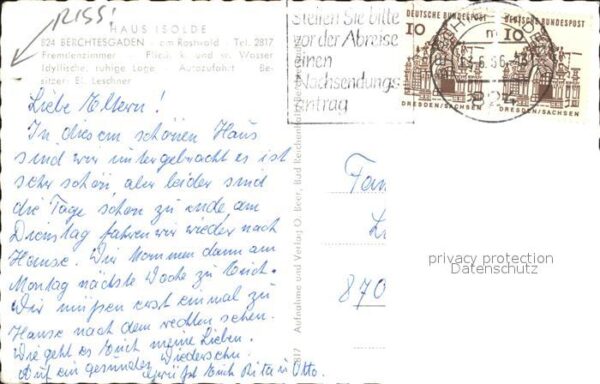 RISS!
HAUS ISOLDE
824 BERCHTESGADEN · am Rostwald · Tel. 2817
Fremdenzimmer · Fließ. k. und w. Wasser
Idyllische, ruhige Lage · Autozufahrt · Be-
sitzer: El. Leschner
Liebe Eltern!
In diesem schönen Haus
sind wir untergebracht es ist
sehr schön, aber leider sind
die Tage schon zu ende am
Dienstag fahren wir wieder nach
Hause. Wir kommen dann am
Montag nächste Woche zu Euch.
Wir müssen erst einmal zu
Hause nach dem rechten sehen.
Wie geht es Euch meine Lieben.
Auf ein gesundes Wiedersehn
grüßt Euch Rita u. Otto.
Aufnahme und Verlag O. Beer, Bad Reichenhall
Stellen Sie bitte
vor der Abreise
einen
Nachsendungs-
antrag
DEUTSCHE BUNDESPOST
10
DRESDEN/SACHSEN
DEUTSCHE BUNDESPOST
10
DRESDEN/SACHSEN
Fam
870
privacy protection
Datenschutz